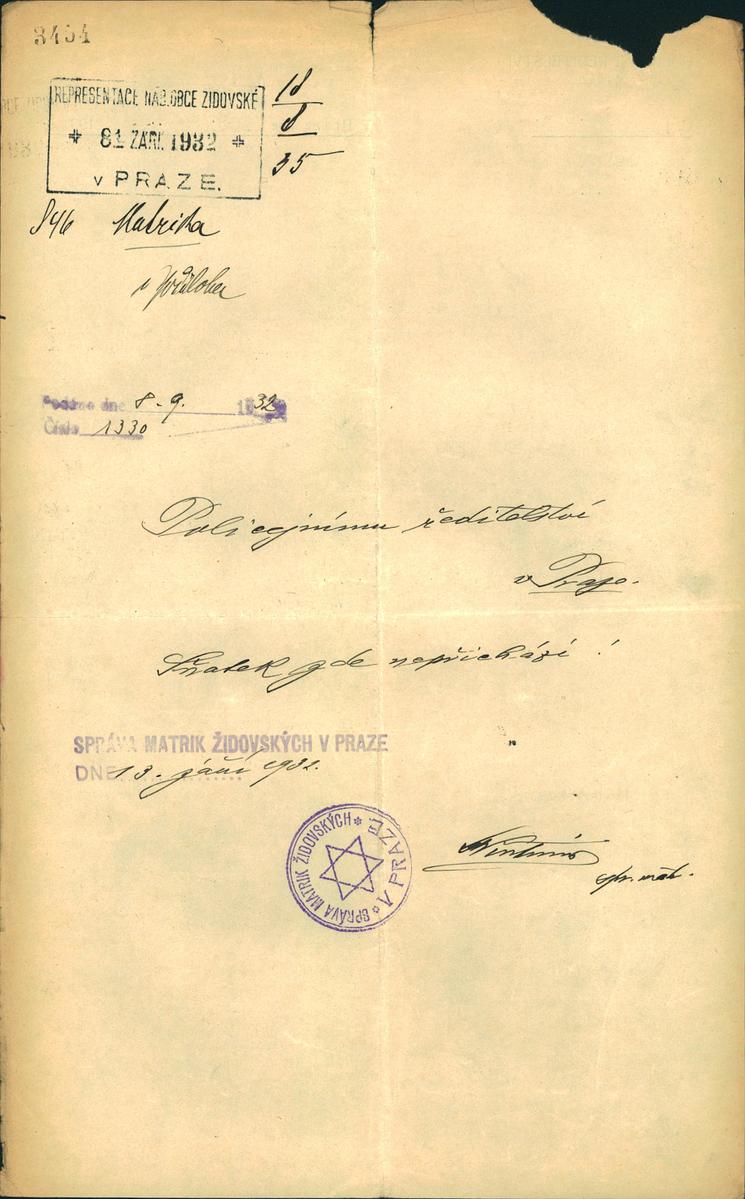 3454
REPRESENTACE NÁB. OBCE ŽIDOVSKÉ
ZÁŘÍ. 1932
V PRAZE.
18
8
35
846 Matrika
1 příloha
Podáno dne 8. 9. 1932
Číslo 1330
Policejnímu ředitelství
v Praze.
Sňatek zde nepřichází!
SPRÁVA MATRIK ŽIDOVSKÝCH V PRAZE
DNE 13. září 1932.
SPRÁVA MATRIK ŽIDOVSKÝCH * V PRAZE *
spr. mat.